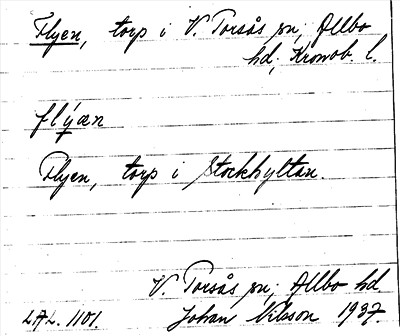 Flyen, torp i V. Torsås sn, Allbo
hd, Kronob. l.
flýæn
Flyen, torp i Stockhyltan.
V. Torsås sn, Allbo hd.
L.A.L. 1101. Johan Nilsson 1927.